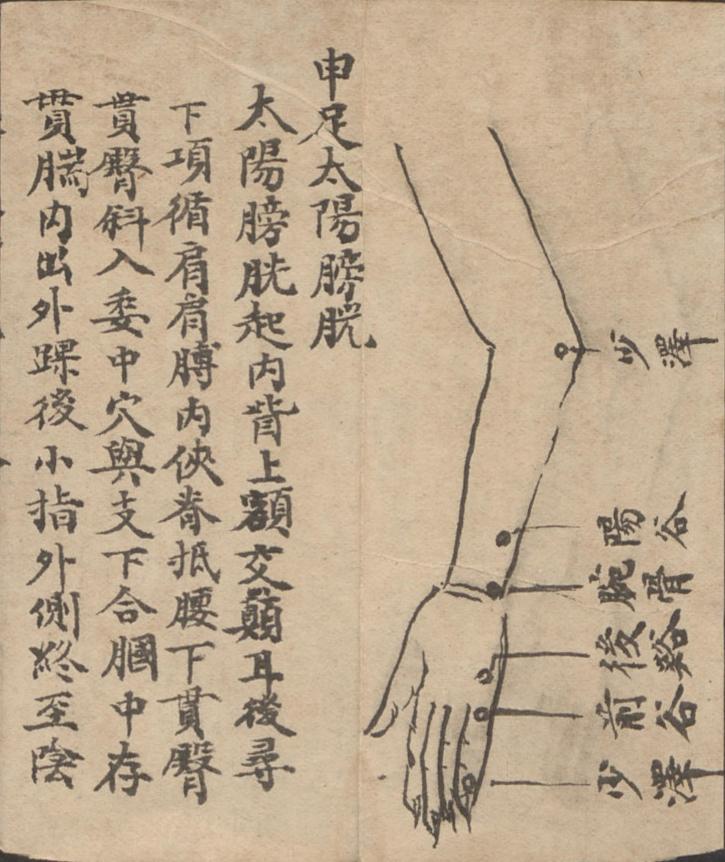 少澤
陽谷
腕骨
後谿
前谷
少澤
申足太陽膀胱
太陽膀胱起內眥上額交顛耳後尋
下項循肩肩膊內俠脊抵腰下貫臀
貫臀斜入委中穴與支下合膕中存
貫腨內出外踝後小指外側終至陰